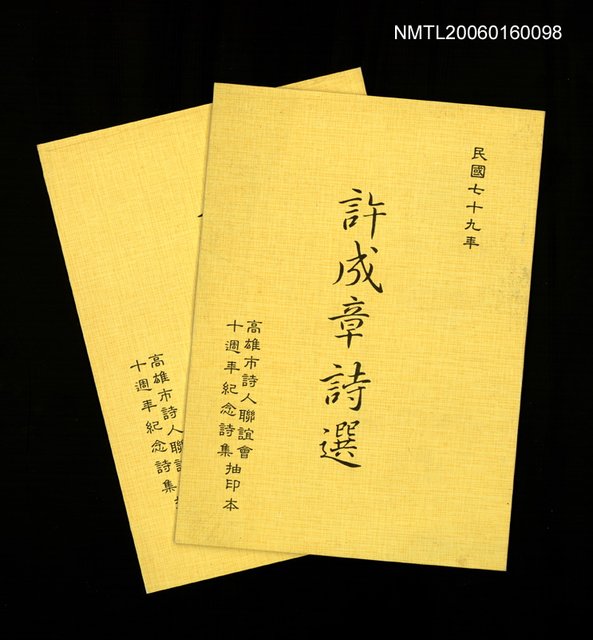 NMTL20060160098
民國七十九年
許成章詩選
高雄市詩人聯誼會
十週年紀念詩集抽印本
高雄市詩人聯誼
十週年紀念詩集